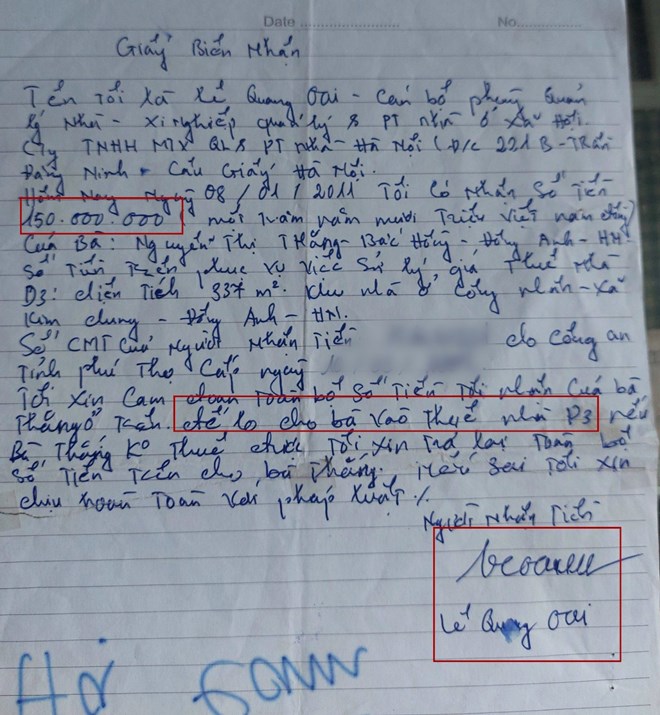 Date ........................ No...................
Giấy Biên Nhận
Tên Tôi Là Lê Quang Oai - Cán bộ phòng Quản
lý Nhà - Xí nghiệp quản lý & PT nhà ở Xã Hội.
Cty TNHH MTV QL & PT nhà - Hà Nội (Đ/c 221B - Trần
Đăng Ninh - Cầu Giấy Hà Nội.
Hôm Nay Ngày 08/01/2011 Tôi Có Nhận Số Tiền
150.000.000 một trăm năm mươi Triệu Việt nam đồng)
Của Bà: Nguyễn Thị Thắng - Bắc Hồng - Đông Anh - HN.
Số Tiền Trên phục vụ việc Sử lý, giá Thuê Nhà
D3: diện Tích 337 m². Khu nhà ở Công nhân - Xã
Kim chung - Đông Anh - HN.
Số CMT Của Người Nhận Tiền do Công an
Tỉnh phú Thọ Cấp ngày
Tôi Xin Cam đoan Toàn bộ Số Tiền Tôi nhận Của bà
Thắng ở Trên. để lo cho bà Vào Thuê nhà D3 nếu
Bà Thắng Ko Thuê được Tôi xin Trả lại Toàn bộ
Số Tiền Trên cho bà Thắng. Nếu Sai Tôi xin
chịu hoàn Toàn Với pháp luật ./.
Người Nhận Tiền
Lê Quang Oai